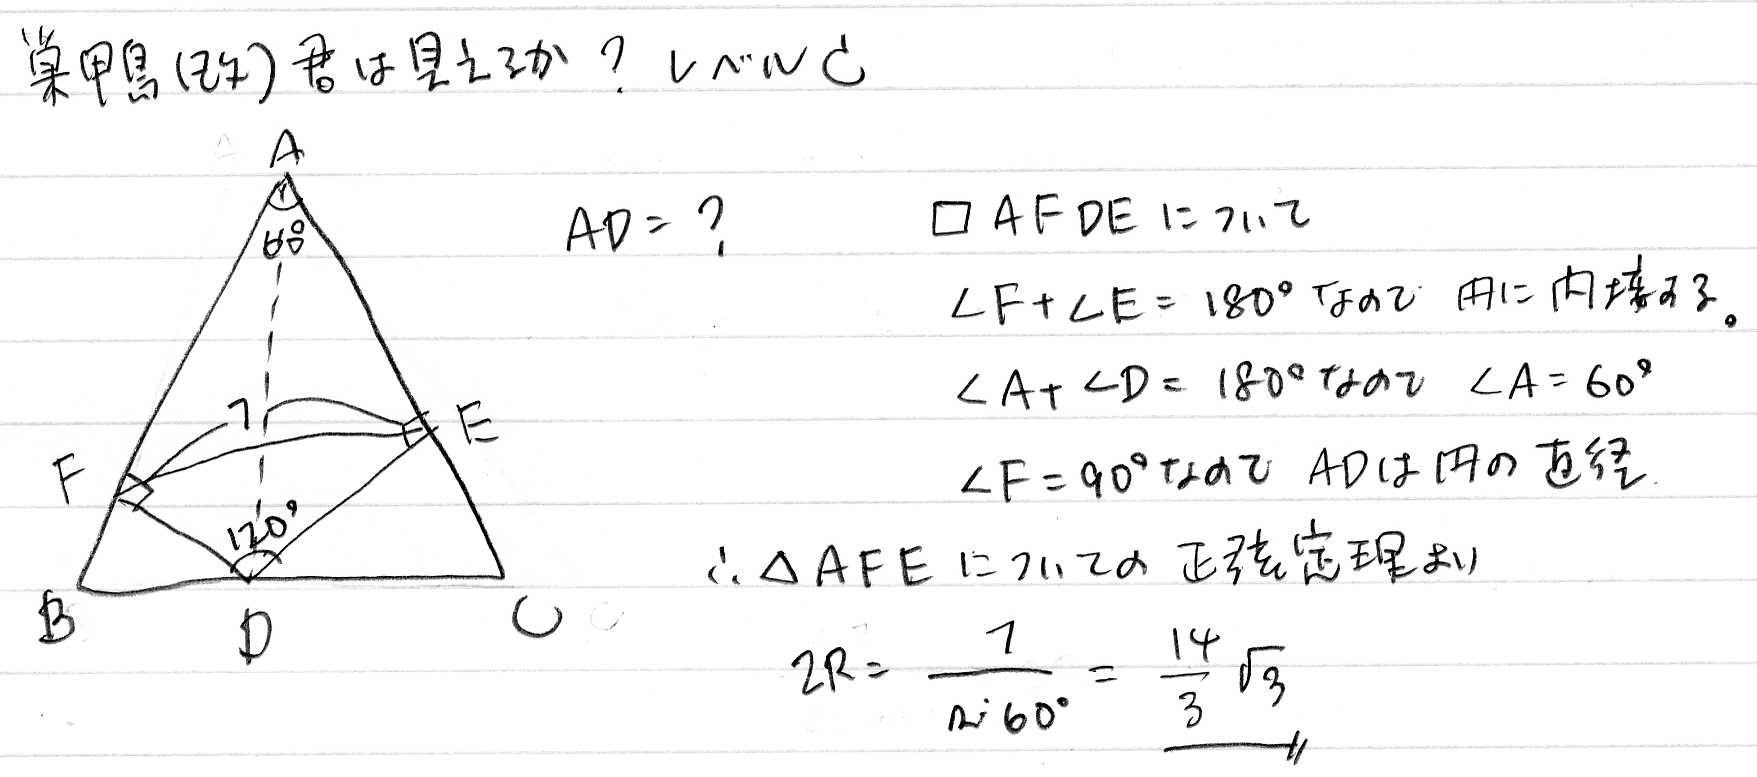 巣鴨(改)君は見えるか? レベルC
A
60°
7
F
E
120°
B
D
C
AD=?
□AFDEについて
∠F+∠E=180°なので 円に内接する。
∠A+∠D=180°なので ∠A=60°
∠F=90°なので ADは円の直径.
∴△AFEについての正弦定理より
2R= 7/sin60° = 14/3 √3